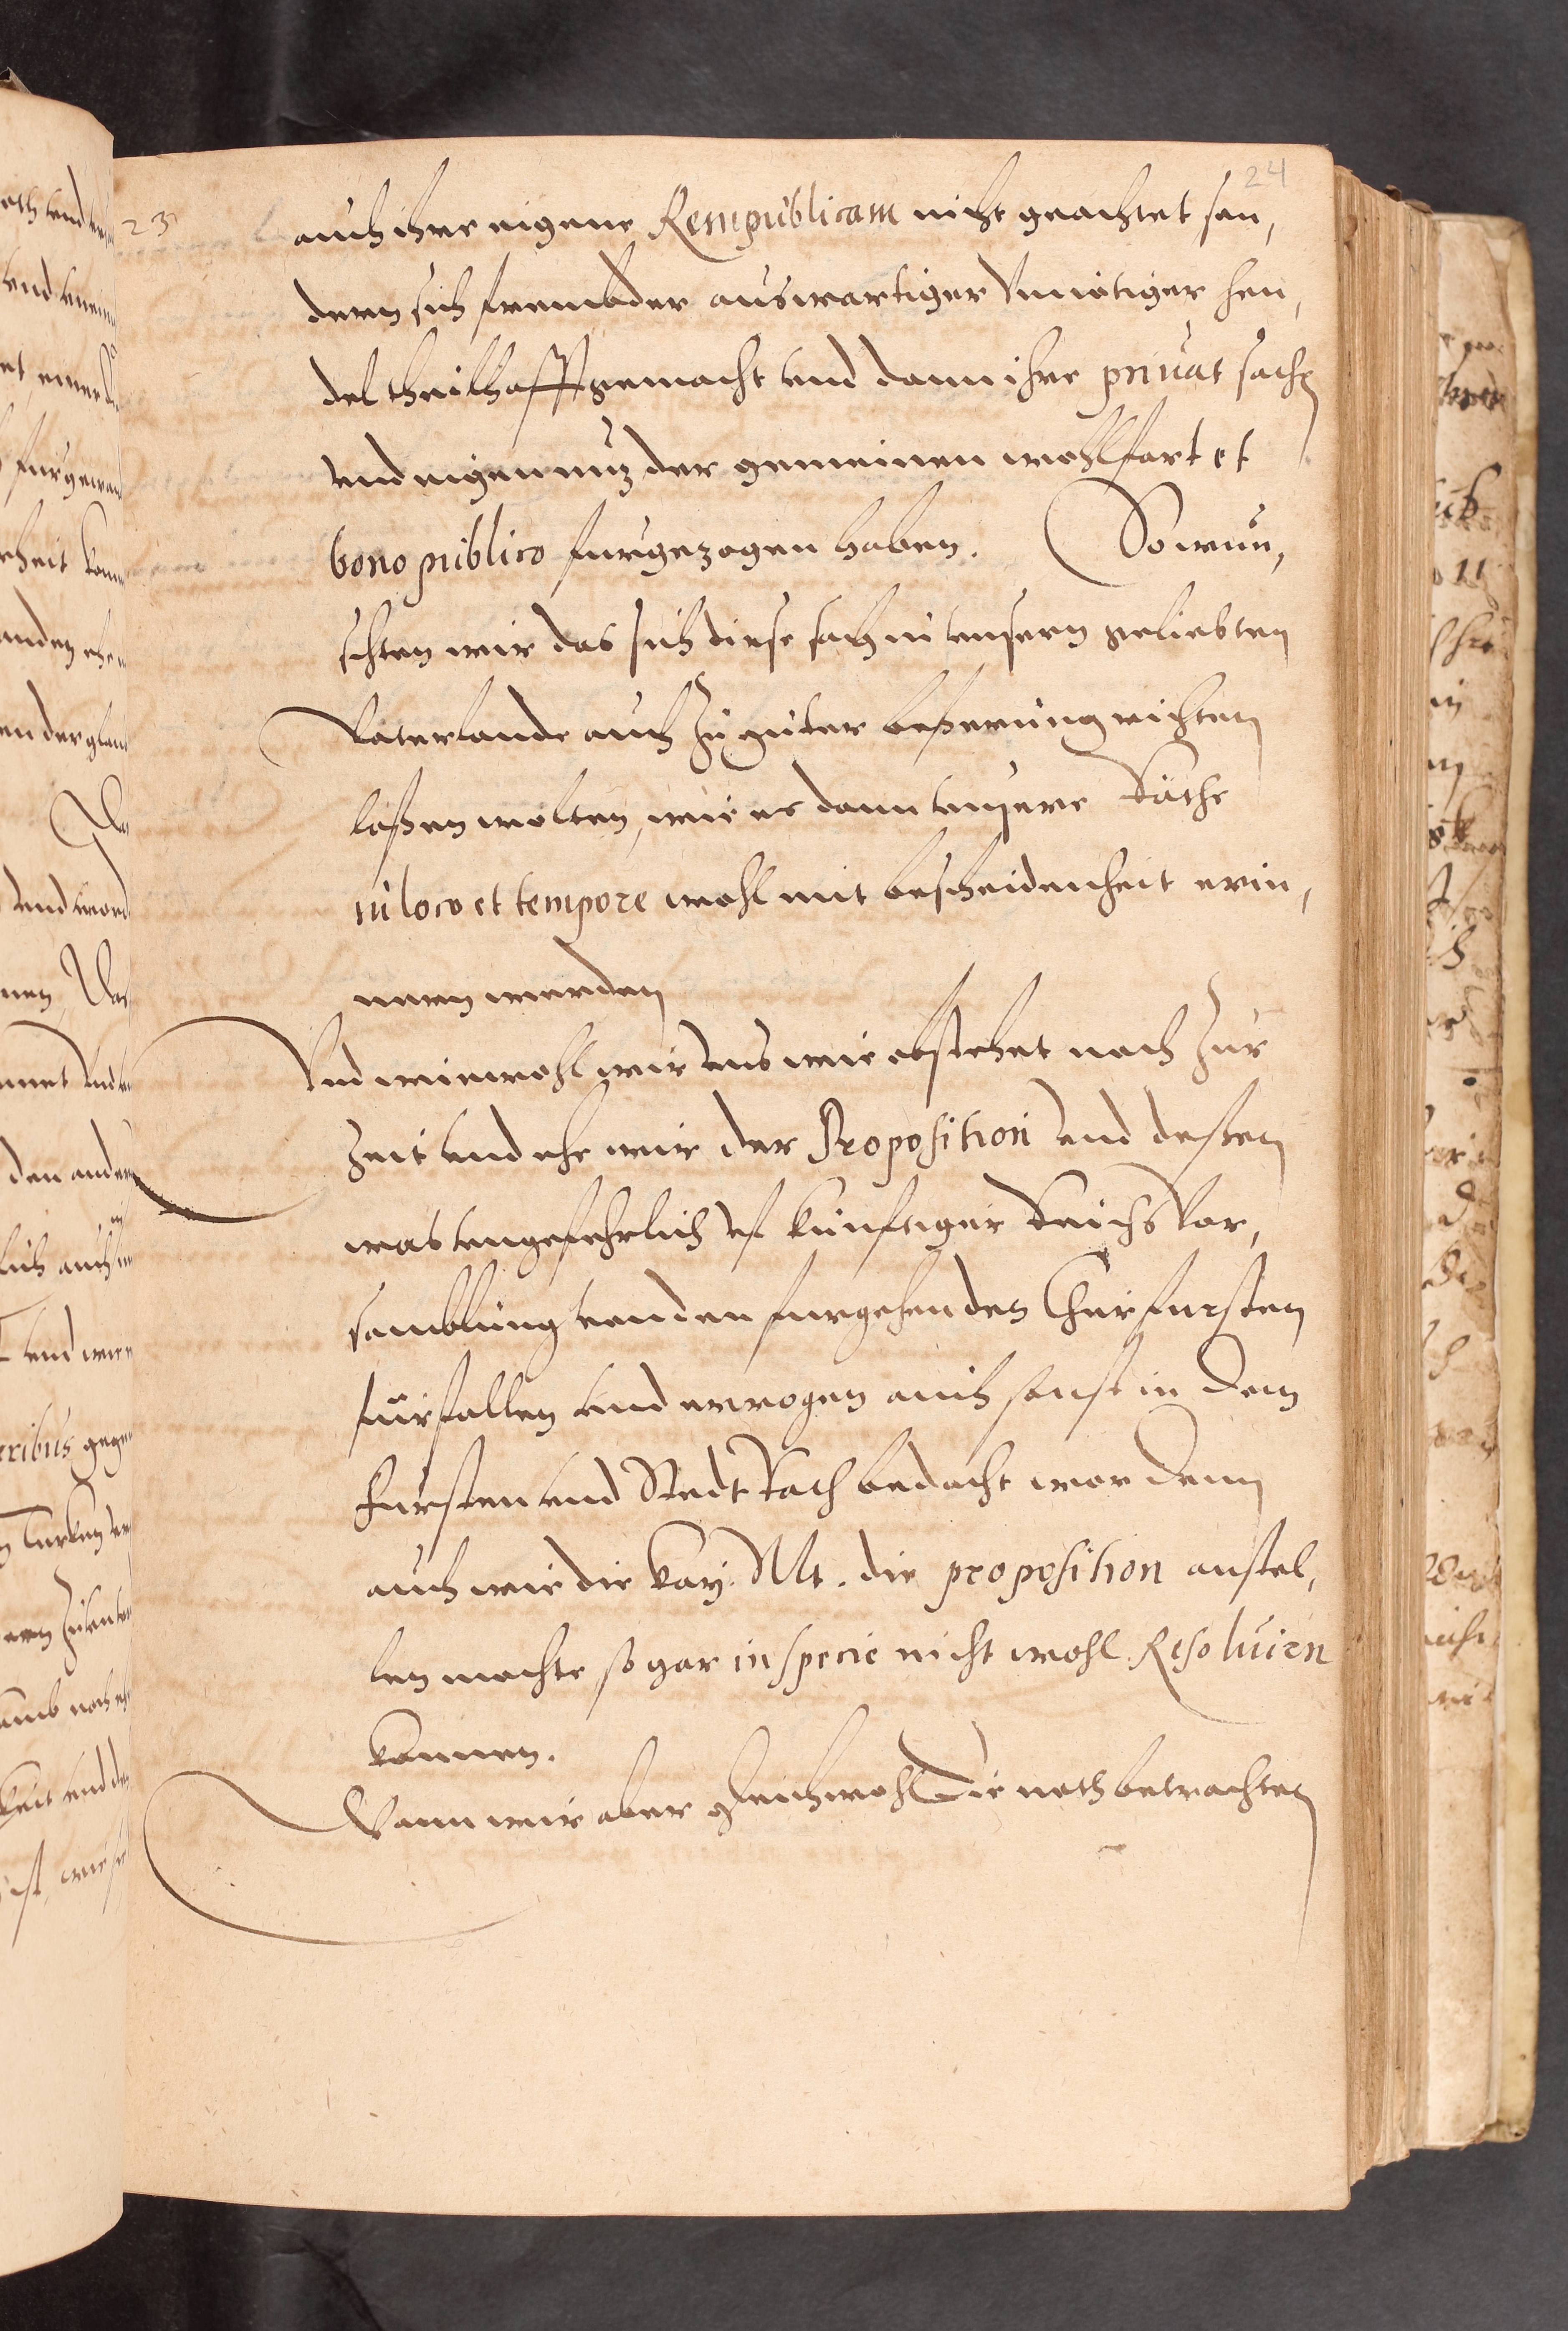 24
23
auch ihre eigene Rempublicam nicht geachtet son,
dern sich frembder auswartiger Unnötiger hen,
del theilhafft gemacht und dann ihre privat sachen
und eigennuz der gemeinen wohlfart et
bono publico furgezogen haben. So wün,
schten wir das sich diese sach in unsern geliebten
Vaterlande auch zu guter besserung richten
lassen wolten, wie es dann unsere Räthe
in loco et tempore wohl mit bescheidenheit erin,
nern werden
Und wiewohl wir uns wie obstehet noch zur
Zeit und ehe wir der Proposition und dessen
was ungefehrlich uf künftiger Reichs Vor,
samblung von den furgehenden Churfursten
fürfallen und erwogen auch sonst in dem
Fursten und Stedt Rath bedacht worden
auch wie die Kay. Mt. die proposition anstel,
len mochte so gar in specie nicht wohl Resolvirn
konnen.
Wann wir aber gleichwohl die noth betrachten